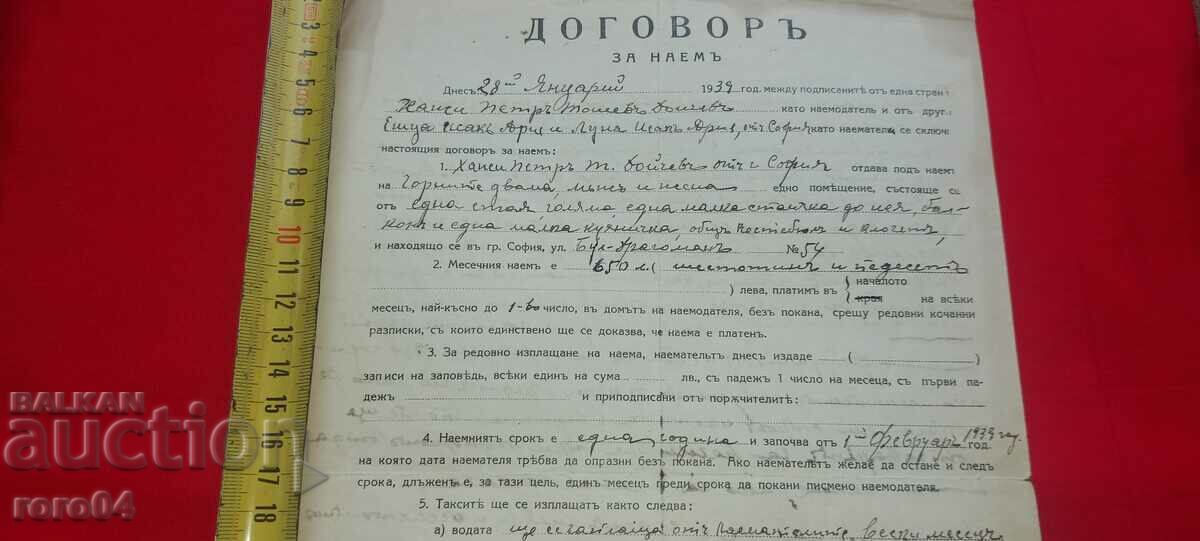 ДОГОВОРЪ
ЗА НАЕМЪ
Днесъ 28й Януарий 1939 год. между подписанитѣ отъ една стран
Ханси Петръ Тошевъ Дойчевъ като наемодатель и отъ друг
Исакъ Арие и Луна Исакъ Арие, отъ София като наематели се сключ
настоящия договоръ за наемъ:
1. Ханси Петръ Т. Дойчевъ отъ г. София отдава подъ наем
на Горните двама, мъжъ и жена едно помѣщение, състояще се
отъ една стая голяма, една малка стаичка до нея, бал-
конъ и една малка кухничка, общъ вестебюлъ и клозетъ,
и находящо се въ гр. София, ул. Бул. Драгоманъ № 54
2. Месечния наемъ е 650 л. ( шестотинъ и педесетъ
) лева, платимъ въ { началото
края на всѣки
месецъ, най-късно до 1-во число, въ домътъ на наемодателя, безъ покана, срещу редовни кочанни
разписки, съ които единствено ще се доказва, че наема е платенъ.
3. За редовно изплащане на наема, наемательтъ днесъ издаде ( )
записи на заповѣдь, всѣки единъ на сума лв., съ падежъ 1 число на месеца, съ първи па-
дежъ и приподписани отъ поржчителитѣ:
4. Наемниятъ срокъ е една година и започва отъ 1й Февруаръ 1939 год. год.
на която дата наемателя трѣбва да опразни безъ покана. Ако наемательтъ желае да остане и следъ
срока, длъженъ е, за тази цель, единъ месецъ преди срока да покани писмено наемодателя.
5. Таксите ще се изплащатъ както следва:
а) водата ще се заплаща отъ наемателите, всеки месецъ
3 4 5 6 7 8 9 10 11 12 13 14 15 16 17 18
BALKAN
Auction
roro04